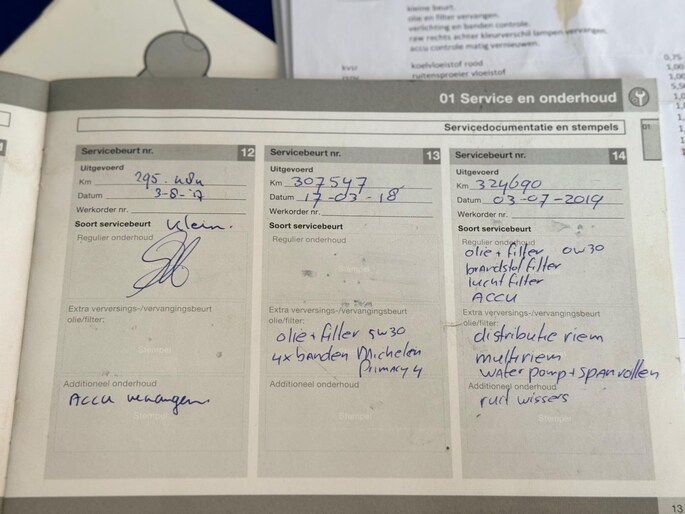 kleine beurt.
olie en filter vervangen.
verlichting en banden controle.
raw rechts achter kleurverschil lampen vervangen,
accu controle matig vernieuwen.
koelvloeistof rood
ruitensproeier vloeistof
0,75
1,00
01 Service en onderhoud
01
Servicedocumentatie en stempels
Servicebeurt nr. 12
Uitgevoerd
Km 295.
Datum 3-8-'17
Werkorder nr.
Soort servicebeurt Klein.
Regulier onderhoud
Extra verversings-/vervangingsbeurt
olie/filter:
Stempel
Additioneel onderhoud
Accu vervangen
Servicebeurt nr. 13
Uitgevoerd
Km 307547
Datum 17-03-18
Werkorder nr.
Soort servicebeurt
Regulier onderhoud
Stempel
Extra verversings-/vervangingsbeurt
olie/filter:
olie + filter 5W30
4x banden Michelen
Primacy 4
Additioneel onderhoud
Stempel
Servicebeurt nr. 14
Uitgevoerd
Km 324690
Datum 03-07-2019
Werkorder nr.
Soort servicebeurt
Regulier onderhoud
olie + filter 0W30
brandstof filter
lucht filter
ACCU
Extra verversings-/vervangingsbeurt
olie/filter:
distributie riem
multiriem
water pomp + spanrollen
Additioneel onderhoud
ruit wissers
Stempel
13